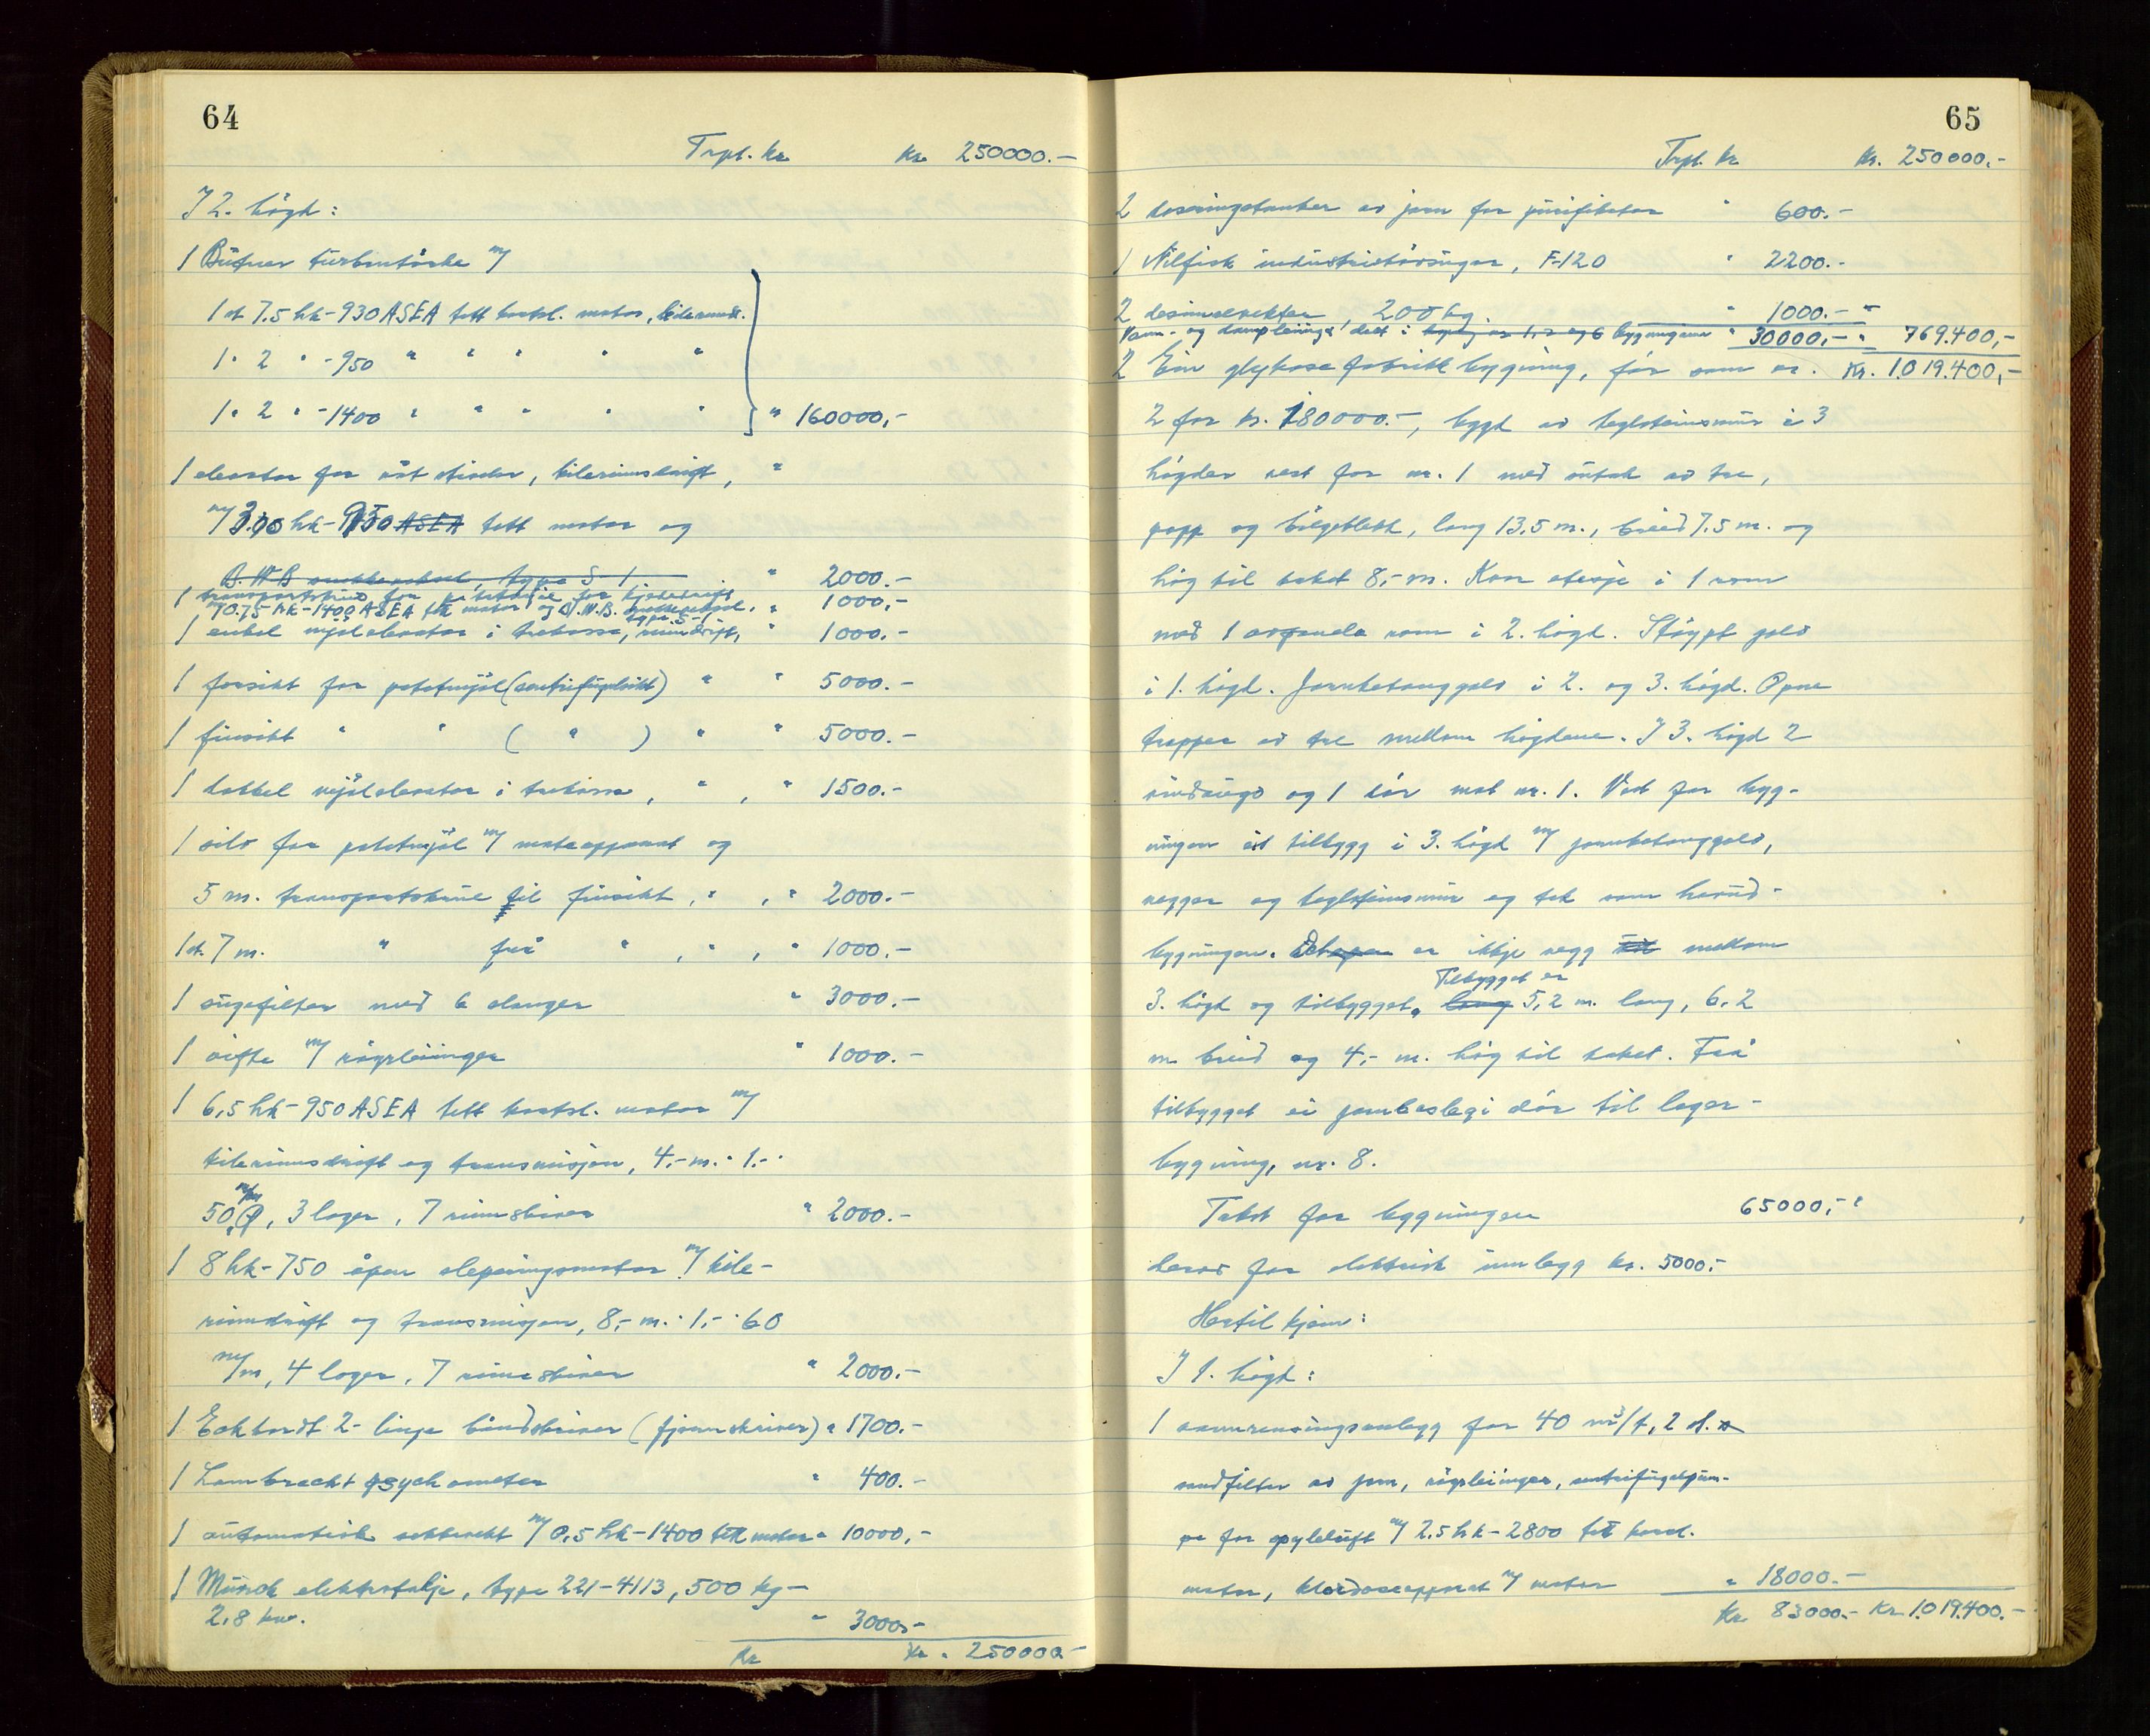 64
Trpt. kr. kr. 250000.-
I 2. høgd:
1 Bütner turbintørke m/
1 st 7.5 hk-930 ASEA tett kortsl. motor, kileremdr.
1 " 2 " -950 " " " " "
1 " 2 " -1400 " " " " " " 160000,-
1 elevator for våt stivelse, kilerimsdrift, "
m/ 3.00 hk-950 ASEA tett motor og
B.W.B snekkeveksel, type S-1 " 2000.-
1 transportskrue for kjededrift
m/ 0.75 hk-1400 ASEA tett motor og B.W.B. snekkeveksel, type S-1 " 1000,-
1 enkel mjølelevator i trekasse, reimdrift, " 1000.-
1 forsikt for potetmjøl (sentrifugalsikt) " " 5000.-
1 finsikt " " ( " ) " " 5000.-
1 dobbel mjølelevator i trekasse, " , " 1500.-
1 silo for potetmjøl m/ mateapparat og
5 m. transportskrue til finsikt, " , " 2000.-
1 st. 7 m. " frå " , " , " 1000.-
1 sugefilter med 6 slanger " 3000.-
1 vifte m/ røyrleiinger " 1000.-
1 6,5 hk-950 ASEA tett kortsl. motor m/
kilerimsdrift og transmisjon, 4,- m. · 1.- ·
50 m/m, 3 lager, 7 rimskiver " 2000.-
1 8 hk-750 åpen sleperingsmotor m/ kile-
rimdrift og transmisjon, 8,- m. · 1,- · 60
m/m, 4 lager, 7 rimskiver " 2000.-
1 Eckhardt 2-linje båndskriver (fjernskriver) " 1700.-
1 Lambrecht psychometer " 400.-
1 automatisk sekkevekt m/ 0,5 hk-1400 tett motor " 10000,-
1 Münck elektrotalje, type 221-4113, 500 kg-
2,8 kw. " 3000.-
kr kr. 250000.-
65
Trpt. kr kr. 250000.-
2 doseringstanker av jern for purifikator " 600.-
1 Nilfisk industristøvsuger, F-120 " 2200.-
2 desimalvekter, 200 kg. " 1000.- "
Vann- og dampleiingar delt i bygg nr 1, 2 og 6 bygningene " 30000,- " 769.400,-
2 Ein glykosefabrikkbygning, før som nr. Kr. 1.019.400,-
2 for kr. 180000.-, bygd av teglsteinsmur i 3
høgder vest for nr. 1 med åstak av tre,
papp og bølgeblekk, lang 13,5 m., breid 7.5 m. og
høg til taket 8,- m. Kvar etasje i 1 rom
med 1 avpanela rom i 2. høgd. Støypt golv
i 1. høgd. Jernbetonggolv i 2. og 3. høgd. Opne
trapper av tre mellom høgdene. I 3. høgd 2
vindaugo og 1 dør mot nr. 1. Vest for byg-
ningen eit tilbygg i 3. høgd m/ jernbetonggolv,
vegger og teglsteinsmur og tak som hovud-
bygningen. Det er ikkje vegg mellom
Tilbygget er
3. høgd og tilbygget. lang 5,2 m. lang, 6,2
m. breid og 4,- m. høg til taket. Frå
tilbygget ei jernbeslegi dør til lager-
bygning, nr. 8.
Takst for bygningen 65000,- "
derav for elektrisk innlegg kr. 5000.-
Hertil kjem:
I 1. høgd:
1 vannrensingsanlegg for 40 m³/t, 2 st.
sandfilter av jern, røyrleiinger, sentrifugalpum-
pe for spyleluft m/ 2.5 hk-2800 tett kortsl.
motor, klordoseapparat m/ motor " 18000.-
Kr. 83000.- Kr. 1.019.400.-